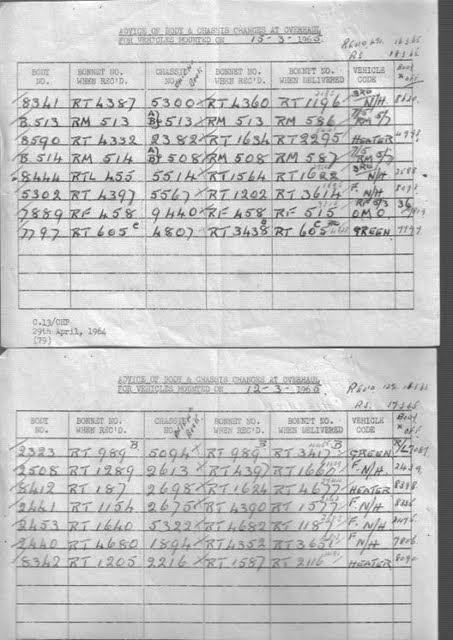 ADVICE OF BODY & CHASSIS CHANGES AT OVERHAUL
FOR VEHICLES MOUNTED ON 15-3-1965
BODY NO. BONNET NO. WHEN REC'D. CHASSIS NO. BONNET NO. WHEN REC'D. BONNET NO. WHEN DELIVERED VEHICLE CODE
8341 RT 4387 5300 RT 4360 RT 1196 3RD N/H
B.513 RM 513 A/B 513 RM 513 RM 586 RM
8590 RT 4332 2382 RT 1634 RT 2295 HEATER
B.514 RM 514 A/B 508 RM 508 RM 587 RM
8444 RTL 455 5514 RT 1564 RT 1622 3RD N/H
5302 RT 4397 5567 RT 1202 RT 3614 F. N/H
7889 RF 458 9440 RF 458 RF 515 OMO
7797 RT 605 4807 RT 3438 RT 605 GREEN
C.13/CHP
29th April, 1964
(79)
ADVICE OF BODY & CHASSIS CHANGES AT OVERHAUL
FOR VEHICLES MOUNTED ON 12-3-1965
BODY NO. BONNET NO. WHEN REC'D. CHASSIS NO. BONNET NO. WHEN REC'D. BONNET NO. WHEN DELIVERED VEHICLE CODE
2323 RT 989 B 5094 RT 989 B RT 3417 B GREEN
2508 RT 1289 2613 RT 4397 RT 1660 F. N/H
8412 RT 187 2698 RT 1624 RT 4677 HEATER
2441 RT 1154 2675 RT 4390 RT 1577 F. N/H
2453 RT 1640 5322 RT 4682 RT 118 F. N/H
2440 RT 4680 1894 RT 4352 RT 3651 F. N/H
8342 RT 1205 2216 RT 1587 RT 2116 HEATER